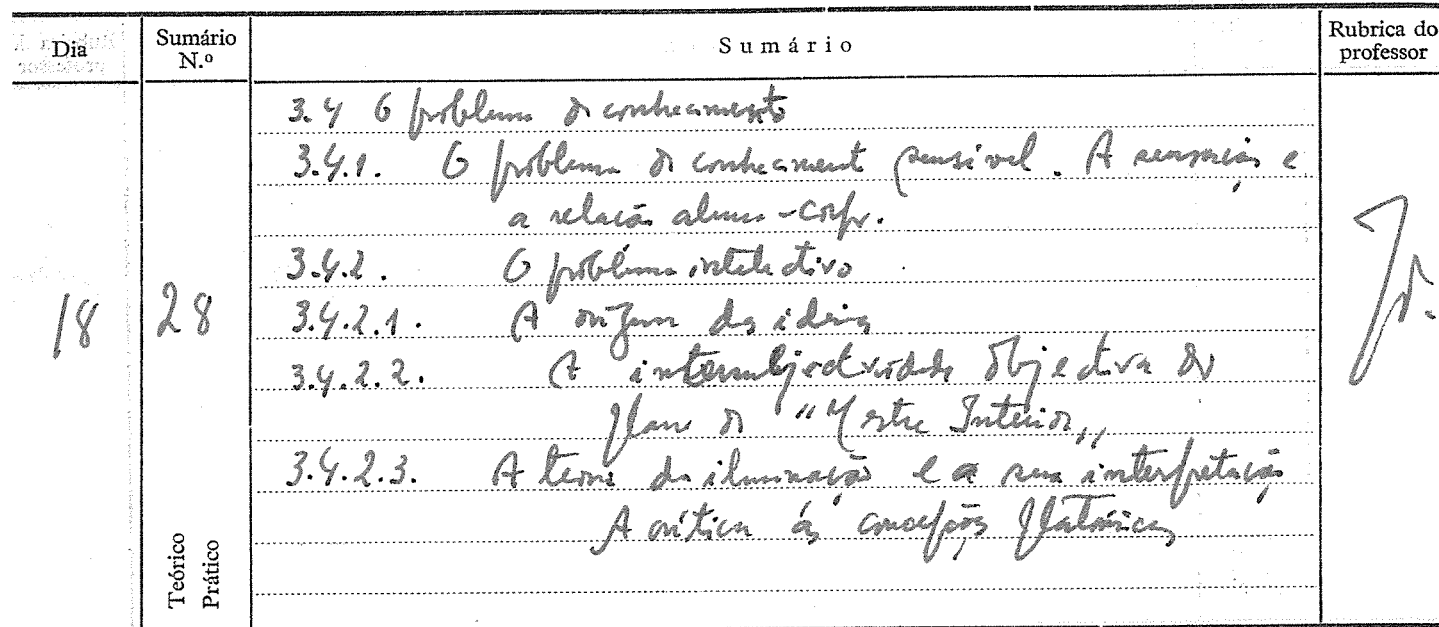 Dia
Sumário N.º
Sumário
Rubrica do professor
3.4 O problema do conhecimento
3.4.1. O problema do conhecimento sensível. A sensação e
a relação alma-corpo.
3.4.2. O problema intelectivo
18
28
3.4.2.1. A origem das ideias
3.4.2.2. A intersubjectividade objectiva do
plano do "Mestre Interior"
3.4.2.3. A teoria da iluminação e a sua interpretação
A crítica às concepções platónicas
Teórico
Prático